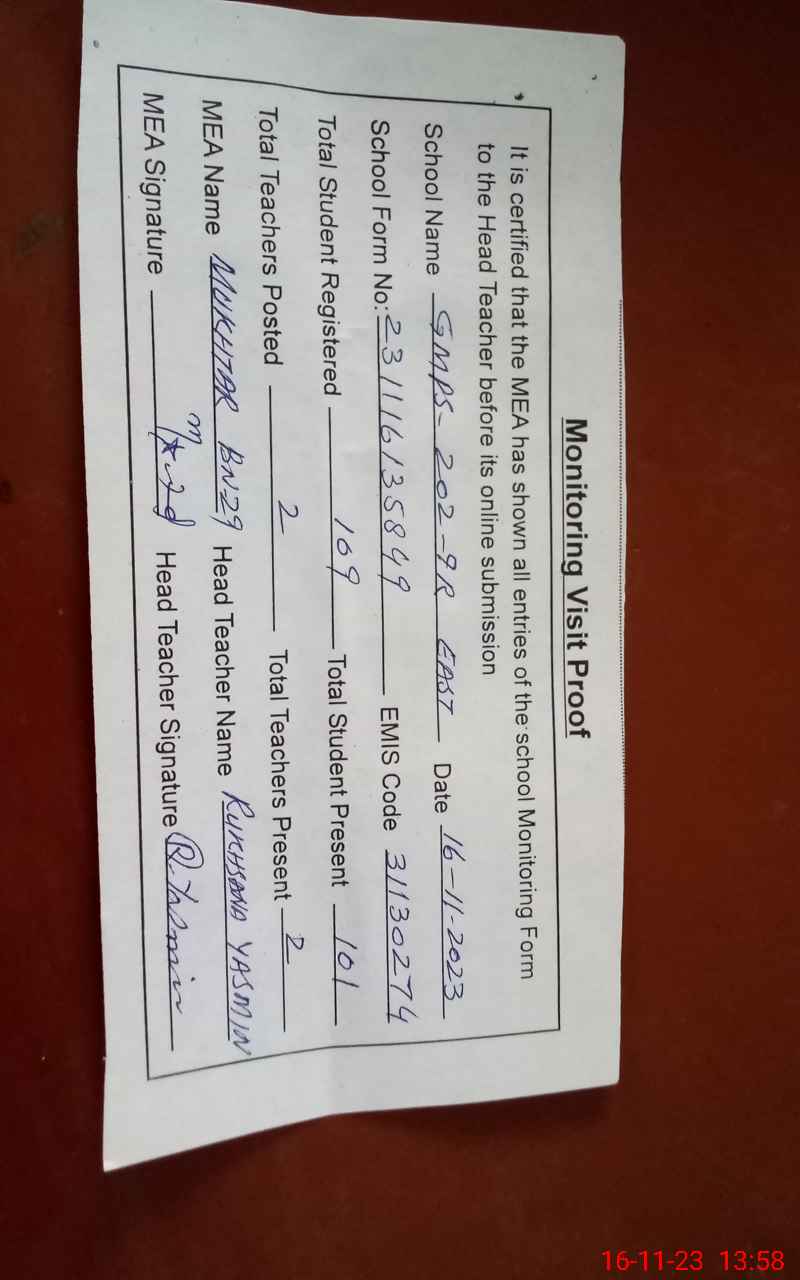 Monitoring Visit Proof
It is certified that the MEA has shown all entries of the school Monitoring Form
to the Head Teacher before its online submission
School Name GMPS-202-9R EAST Date 16-11-2023
School Form No: 231116135849 EMIS Code 31130274
Total Student Registered 109 Total Student Present 101
Total Teachers Posted 2 Total Teachers Present 2
MEA Name MUKHTAR BN-29 Head Teacher Name RUKHSANA YASMIN
MEA Signature Head Teacher Signature R.Yasmin
16-11-23 13:58